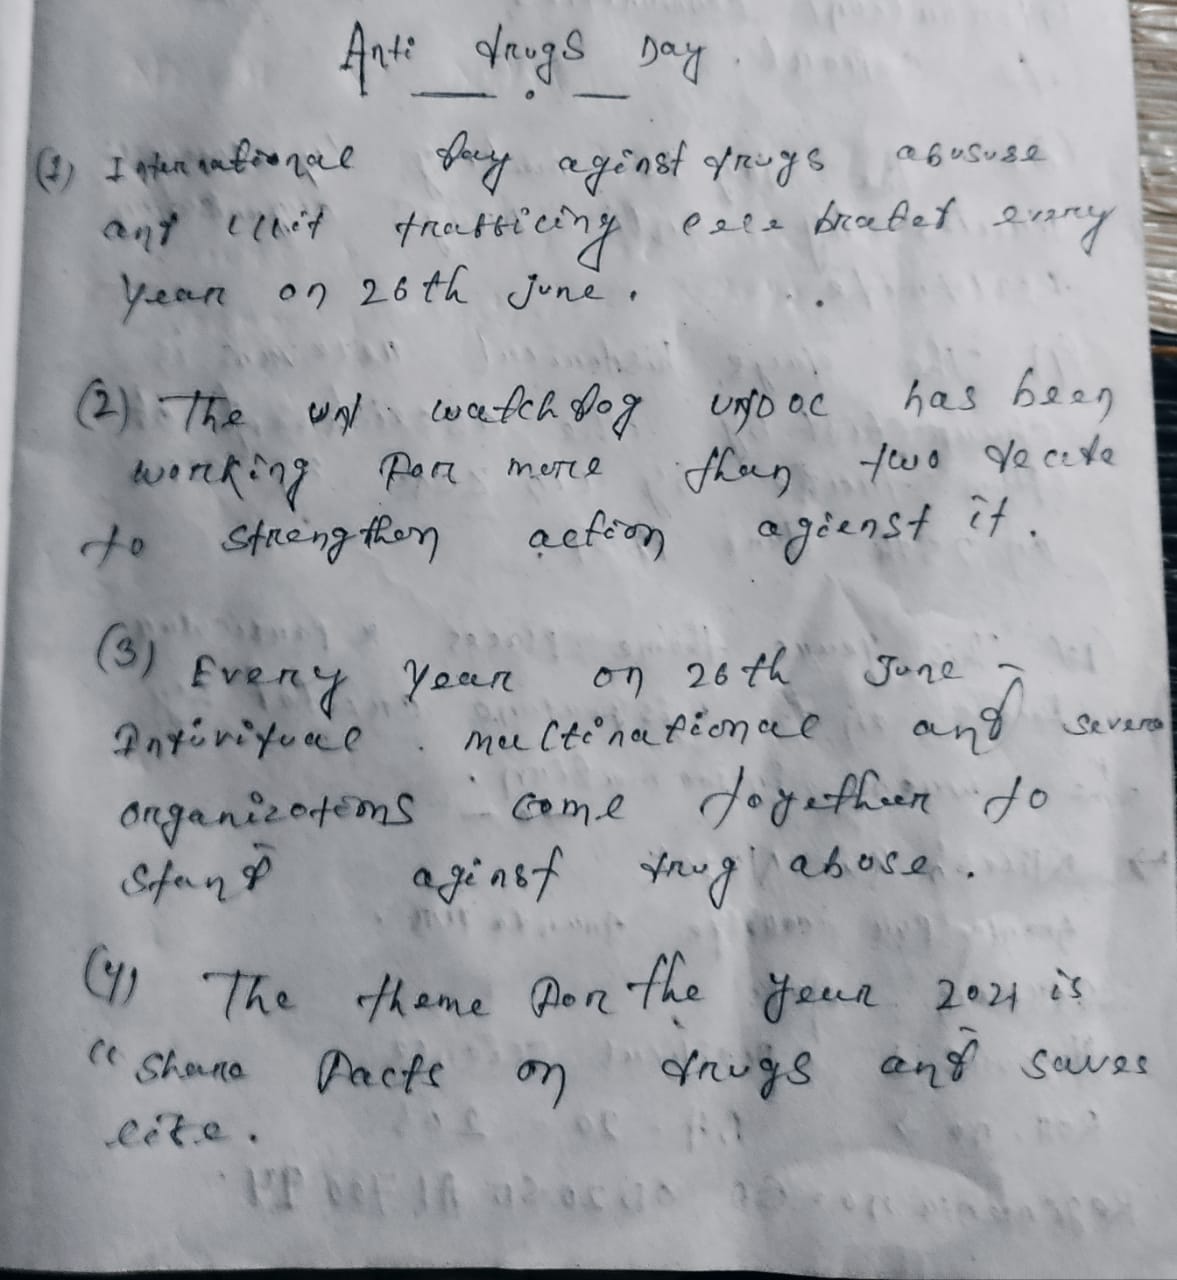 Anti drugs Day.
(1) International Day aginst drugs abususe
and illit trafficing celebrated every
Year on 26th june.
(2) The UN watch dog UNDOC has been
working for more than two decade
to strengthen action agienst it.
(3) Every Year on 26th June -
Individual multinational and severa
organizations come together to
stand aginst drug abose.
(4) The theme for the year 2021 is
"Share facts on drugs and saves
life.